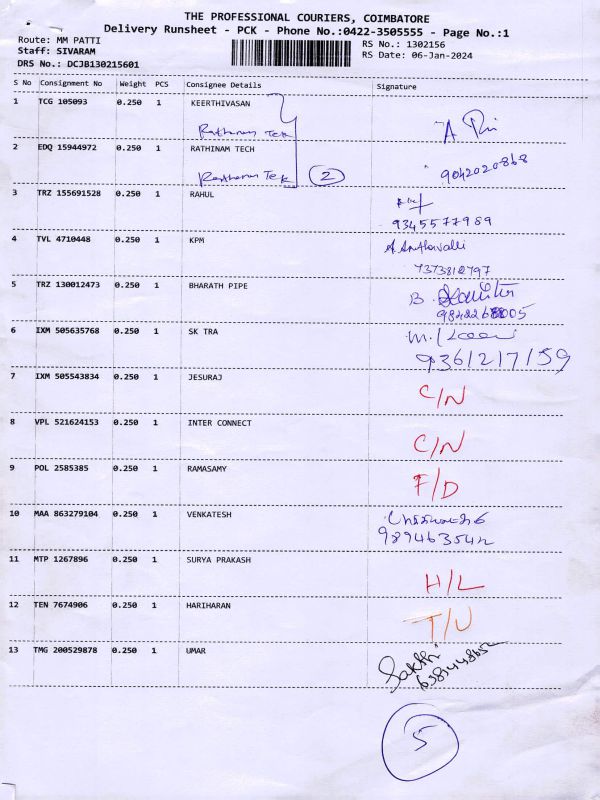 THE PROFESSIONAL COURIERS, COIMBATORE
Delivery Runsheet - PCK - Phone No.:0422-3505555 - Page No.:1
Route: MM PATTI
Staff: SIVARAM
DRS No.: DCJB130215601
RS No.: 1302156
RS Date: 06-Jan-2024
S No Consignment No Weight PCS Consignee Details Signature
1 TCG 105093 0.250 1 KEERTHIVASAN
Rathinam Tek
2 EDQ 15944972 0.250 1 RATHINAM TECH
Rathinam Tek 2
9042020868
3 TRZ 155691528 0.250 1 RAHUL
9345577989
4 TVL 4710448 0.250 1 KPM
7373812797
5 TRZ 130012473 0.250 1 BHARATH PIPE
B.
6 IXM 505635768 0.250 1 SK TRA
9361217159
7 IXM 505543834 0.250 1 JESURAJ
C/N
8 VPL 521624153 0.250 1 INTER CONNECT
C/N
9 POL 2585385 0.250 1 RAMASAMY
F/D
10 MAA 863279104 0.250 1 VENKATESH
11 MTP 1267896 0.250 1 SURYA PRAKASH
H/L
12 TEN 7674906 0.250 1 HARIHARAN
T/U
13 TMG 200529878 0.250 1 UMAR
Sakthi
5